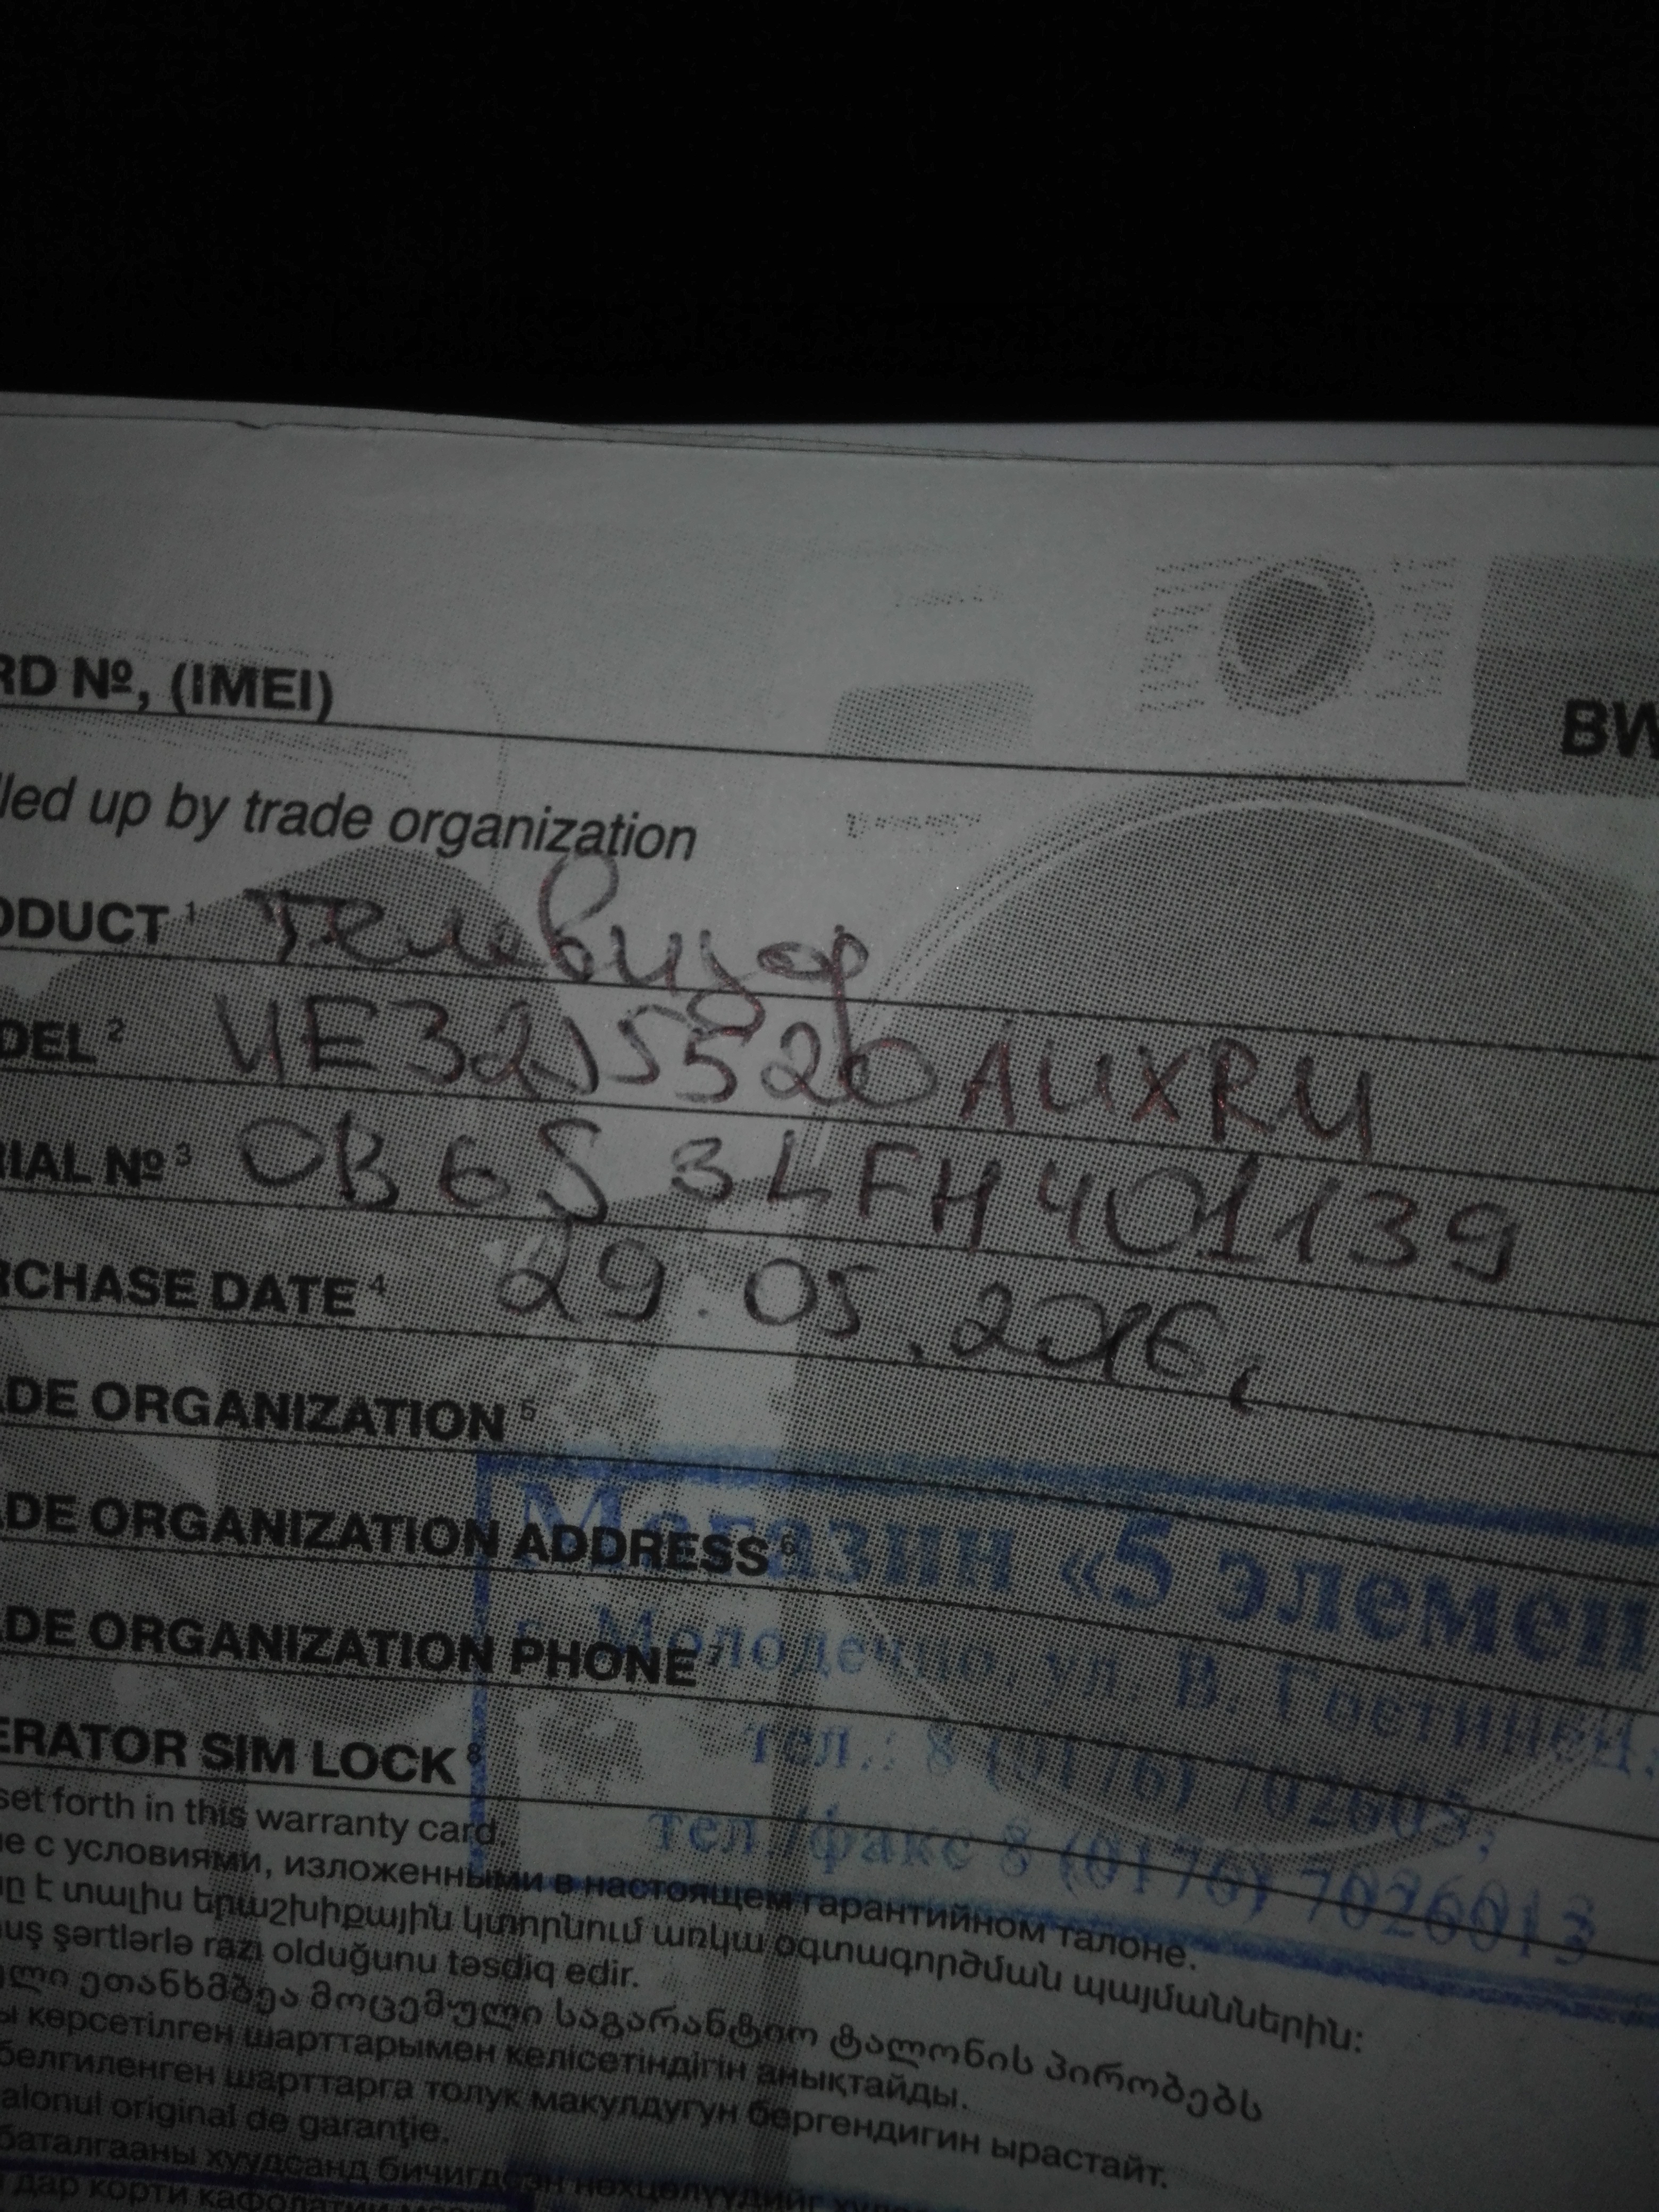 RD №, (IMEI)
BW
lled up by trade organization
ODUCT 1 Телевизор
DEL 2 UE32J5520AUXRU
RIAL № 3 0B6S3LFH401139
RCHASE DATE 4 29.05.2016г
ADE ORGANIZATION 5
ADE ORGANIZATION ADDRESS 6
Магазин «5 элемен
ADE ORGANIZATION PHONE 7
г. Молодечно, ул. В. Гостинец,
ERATOR SIM LOCK 8
тел.: 8 (0176) 702605,
set forth in this warranty card.
тел./факс 8 (0176) 7026013
ие с условиями, изложенными в настоящем гарантийном талоне.
է տալիս երաշխիքային կտրոնում առկա օգտագործման պայմաններին:
uş şərtlərlə razı olduğunu təsdiq edir.
ული ეთანხმბეა მოცემული საგარანტიო ტალონის პირობებს
ы көрсетілген шарттарымен келісетіндігін анықтайды.
белгиленген шарттарга толук макулдугун бергендигин ырастайт.
alonul original de garanţie.
баталгааны хуудсанд бичигдсэн нөхцөлүүдийг
дар корти кафолатии